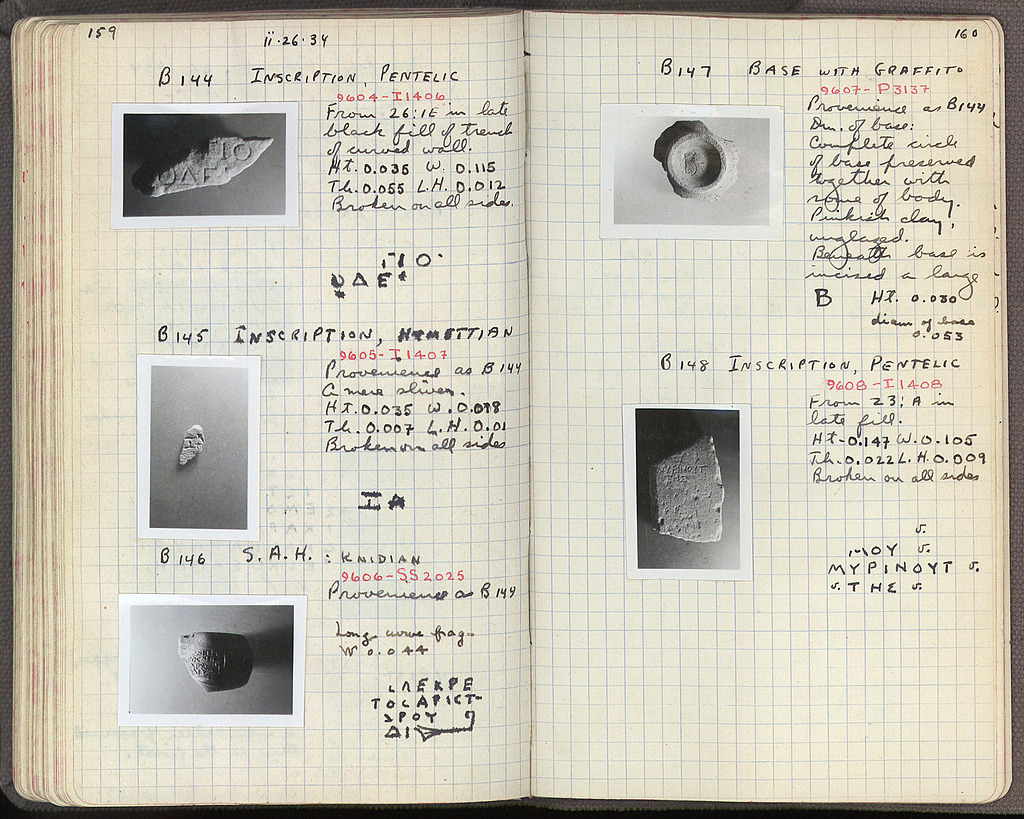 159
ii·26·34
B144 INSCRIPTION, PENTELIC
9604-I1406
From 26:IE in late
black fill of trench
of curved wall.
Ht. 0.035 W. 0.115
Th. 0.055 L.H. 0.012
Broken on all sides.
ΓΙΟ
ΔΕ
B145 INSCRIPTION, HYMETTIAN
9605-I1407
Provenience as B144
A mere sliver.
Ht. 0.035 W. 0.018
Th. 0.007 L.H. 0.01
Broken on all sides
ΙΑ
B146 S.A.H.: KNIDIAN
9606-SS2025
Provenience as B144
Long curve frag-
W 0.044
ΕΚΡΕ
ΤΟCΑΡΙCΤ-
ΡΟΥ
ΔΙ
160
B147 BASE WITH GRAFFITO
9607-P3137
Provenience as B144
Dm. of base:
Complete circle
of base preserved
together with
some of body.
Pinkish clay,
unglazed.
Beneath base is
incised a large
B Ht. 0.030
diam of base
0.053
B148 INSCRIPTION, PENTELIC
9608-I1408
From 23:A in
late fill.
Ht-0.147 W.0.105
Th.0.022 L.H.0.009
Broken on all sides
v.
ΜΟΥ v.
ΜΥΡΙΝΟΥΤ v.
v. ΤΗΣ v.